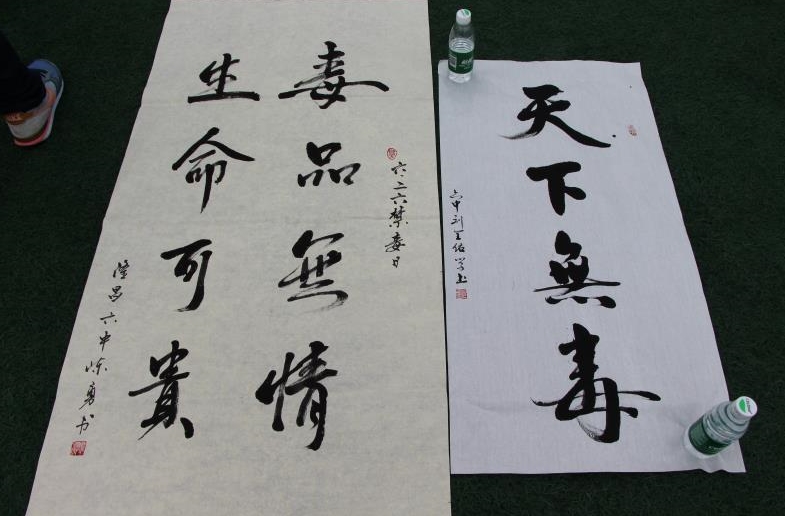 六·二六禁毒日
毒品無情
生命可貴
隆昌六中陈勇书
天下無毒
六中刘佑学书